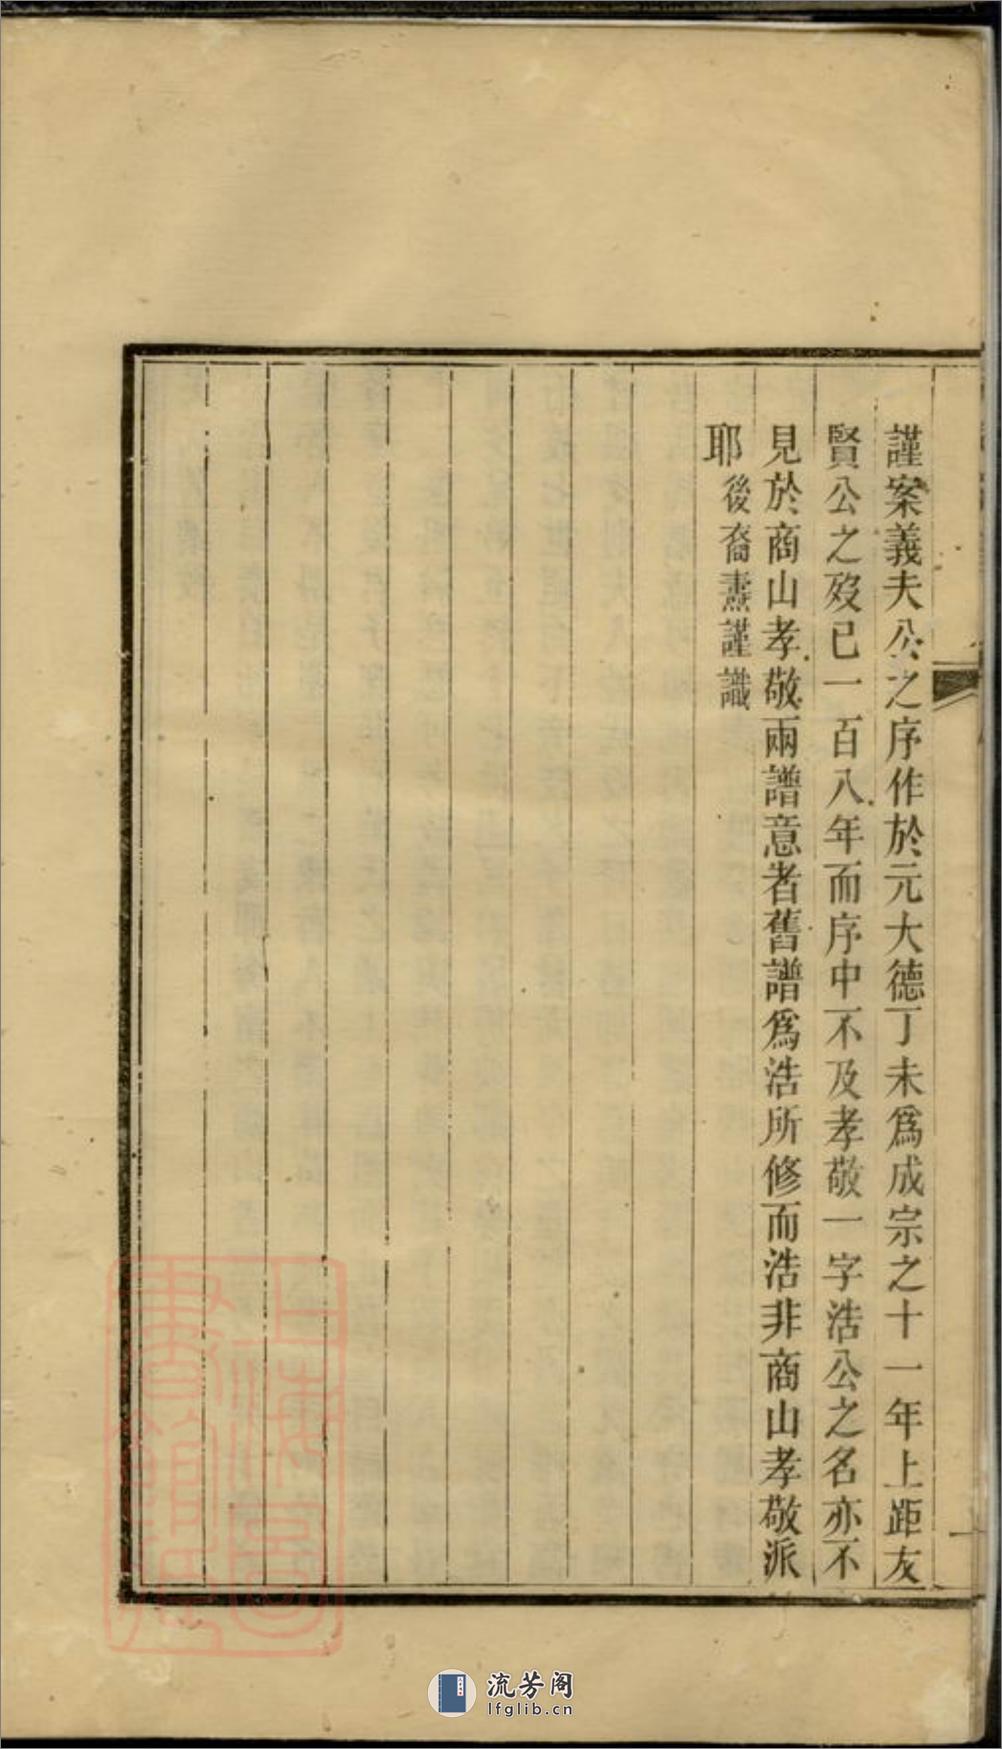 謹案義夫公之序作於元大德丁未爲成宗之十一年上距友
賢公之歿已一百八年而序中不及孝敬一字浩公之名亦不
見於商山孝敬兩譜意者舊譜爲浩所修而浩非商山孝敬派
耶後裔燾謹識
上海圖書館藏
流芳阁
lfglib.cn